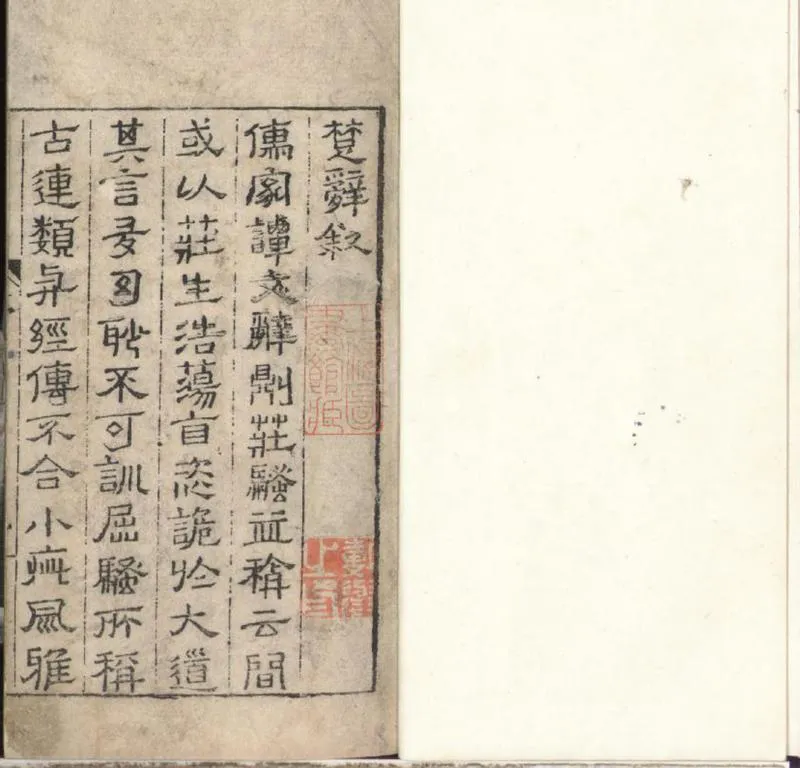 楚辭敘
儒家譚文辭則莊騷並稱云間
或以莊生浩蕩自恣詭於大道
其言多可恥不可訓屈騷所稱
古連類與經傳不合小疵風雅